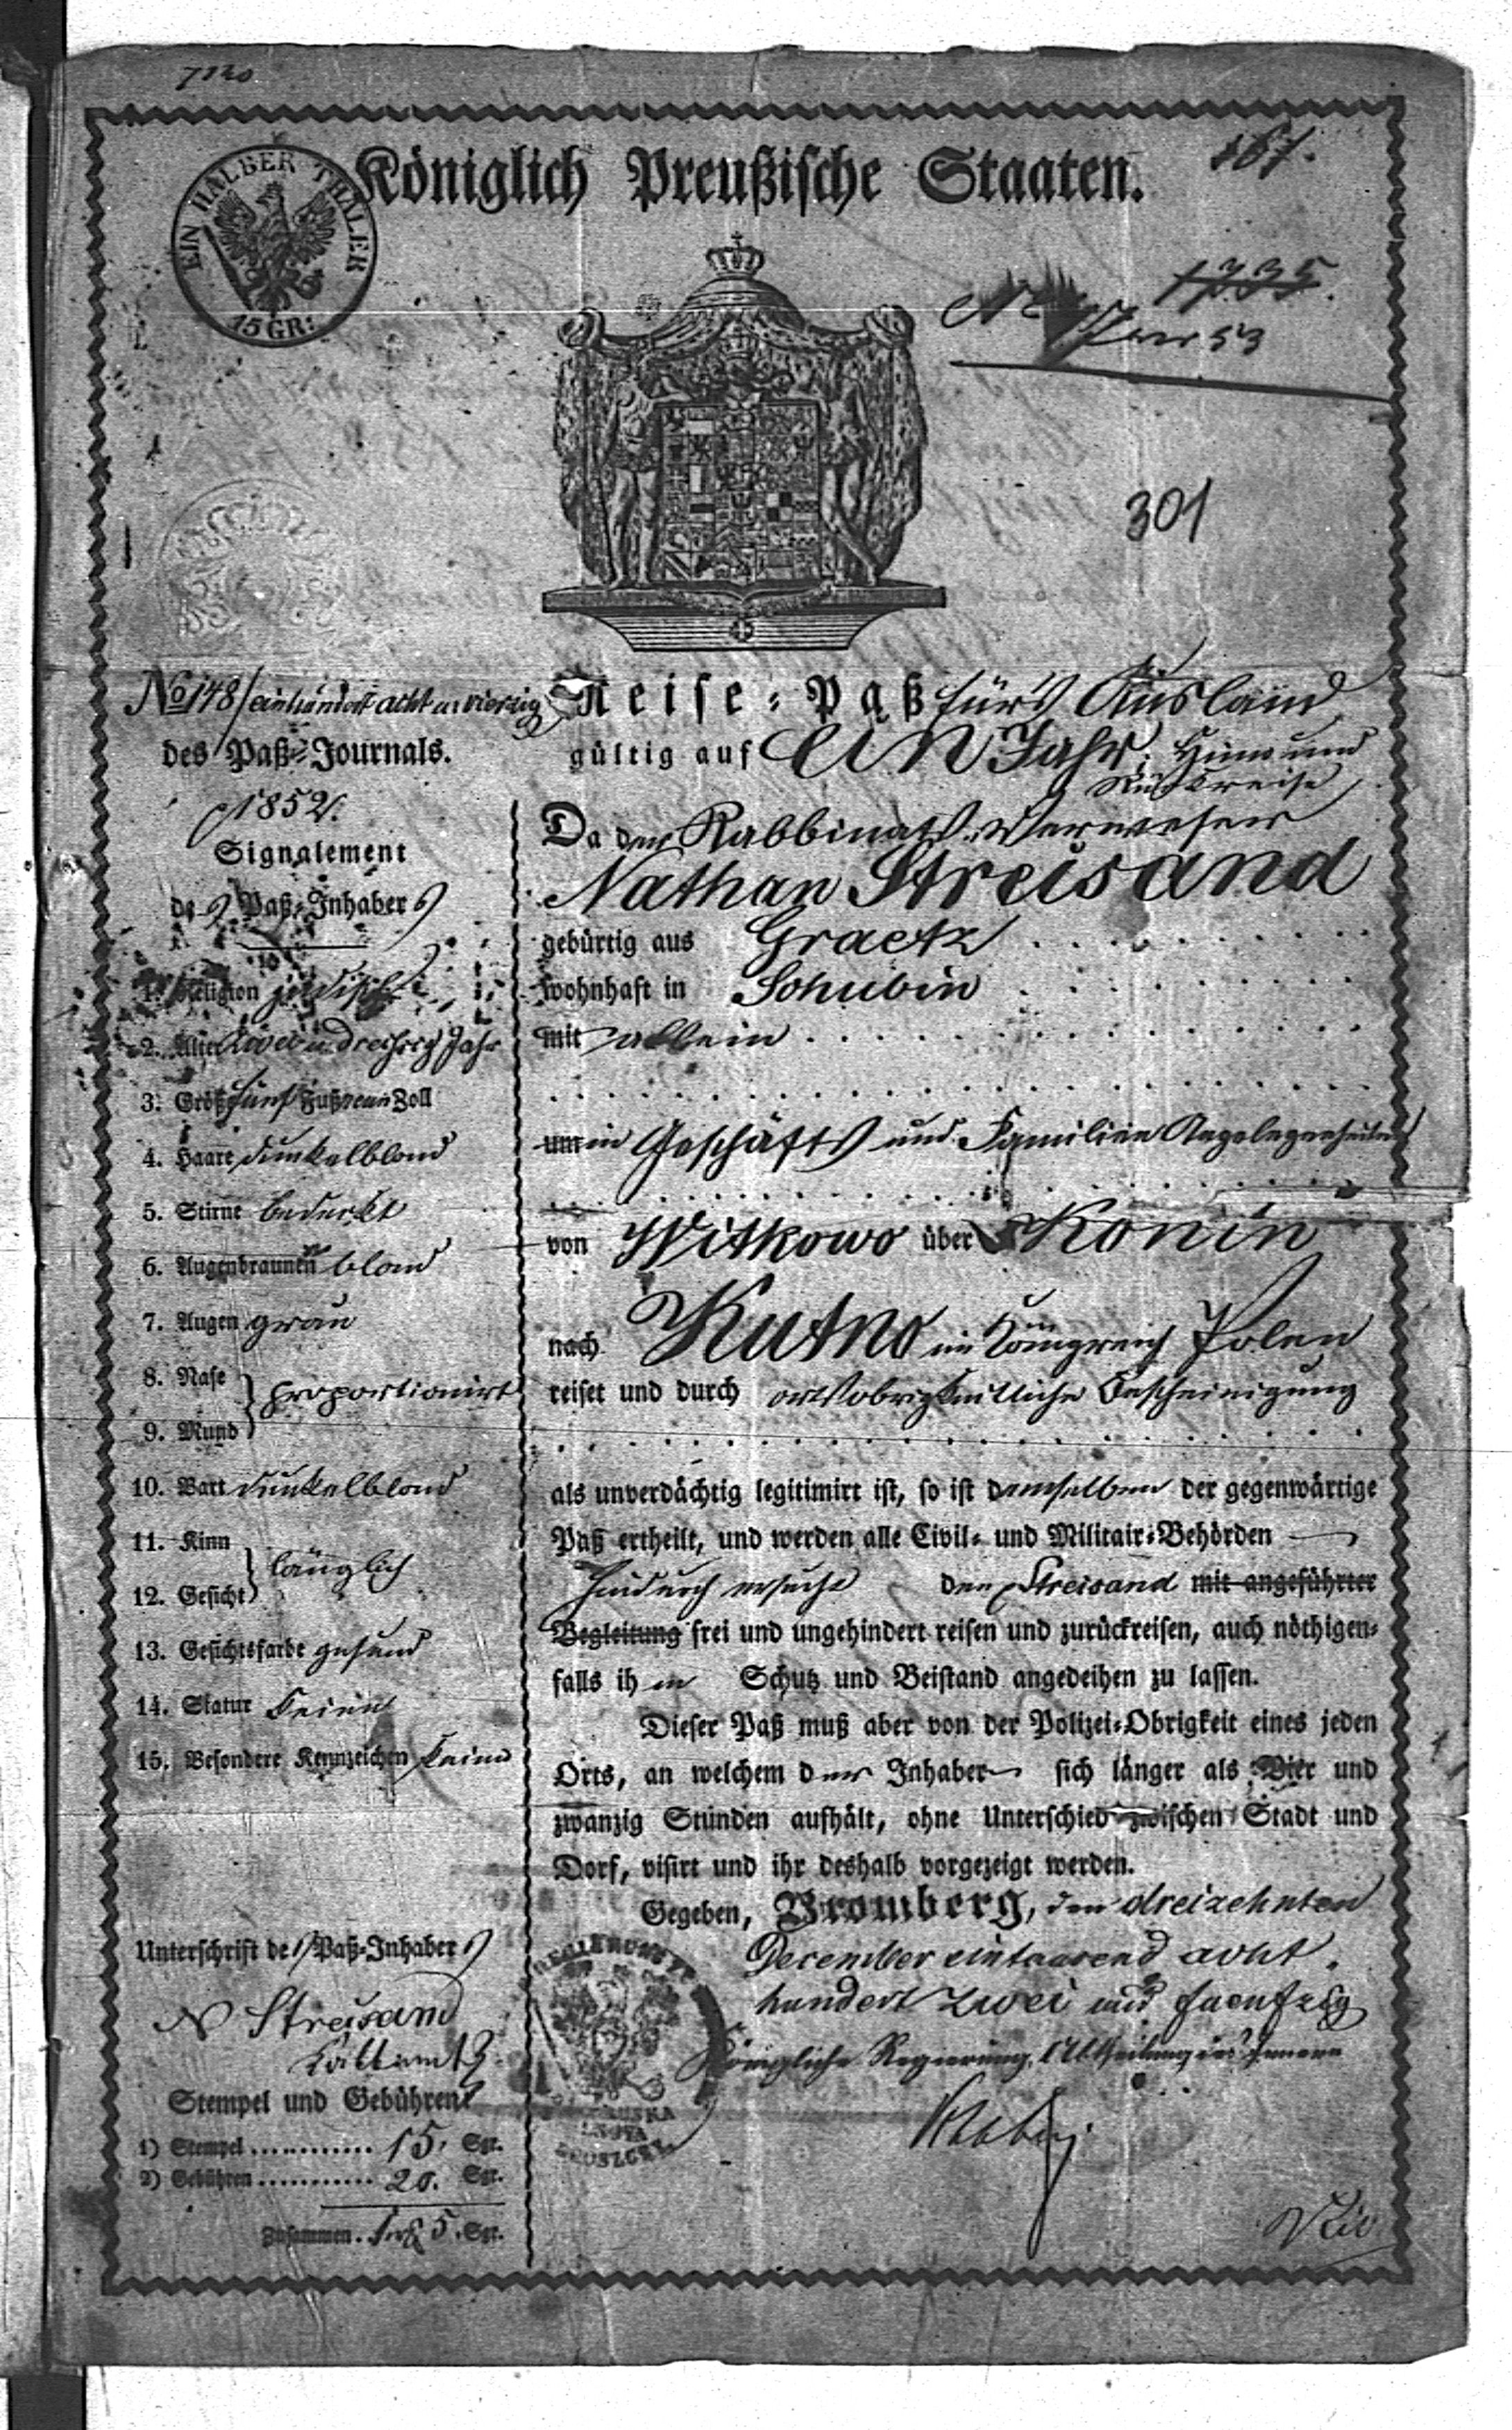 7120
EIN HALBER THALER
15 GR:
Königlich Preußische Staaten.
167.
1735.
53
301
No 148/einhundert acht u. vierzig
des Paß-Journals.
1852.
Signalement
des Paß-Inhabers
1. Religion jüdisch
2. Alter zwei u. dreißig Jahr
3. Größe fünf Fuß neun Zoll
4. Haare dunkelblond
5. Stirne bedeckt
6. Augenbraunen blond
7. Augen grau
8. Nase
9. Mund
proportionirt
10. Bart dunkelblond
11. Kinn
12. Gesicht
länglich
13. Gesichtsfarbe gesund
14. Statur
15. Besondere Kennzeichen keine
Unterschrift des Paß-Inhabers
N Streisand
Stempel und Gebühren
1) Stempel ............ 15. Sgr.
2) Gebühren ........... 20. Sgr.
Zusammen. 1 rt 5. Sgr.
Reise-Paß für's Ausland
gültig auf Ein Jahr, Hin- und
Rückreise
Da der Rabbinats-Verweser
Nathan Streisand
gebürtig aus Graetz
wohnhaft in Schubin
mit allein
um in Geschäfts und Familien Angelegenheiten
von Witkowo über Konin
nach Kutno im Königreich Polen
reiset und durch ortsobrigkeitliche Bescheinigung
als unverdächtig legitimirt ist, so ist demselben der gegenwärtige
Paß ertheilt, und werden alle Civil- und Militair-Behörden
hiedurch ersucht den Streisand mit angeführter
Begleitung frei und ungehindert reisen und zurückreisen, auch nöthigen-
falls ihm Schutz und Beistand angedeihen zu lassen.
Dieser Paß muß aber von der Polizei-Obrigkeit eines jeden
Orts, an welchem der Inhaber sich länger als Vier und
zwanzig Stunden aufhält, ohne Unterschied zwischen Stadt und
Dorf, visirt und ihr deshalb vorgezeigt werden.
Gegeben, Bromberg, den dreizehnten
December eintausend acht
hundert zwei und fuenfzig
Königliche Regierung, Abtheilung des Innern